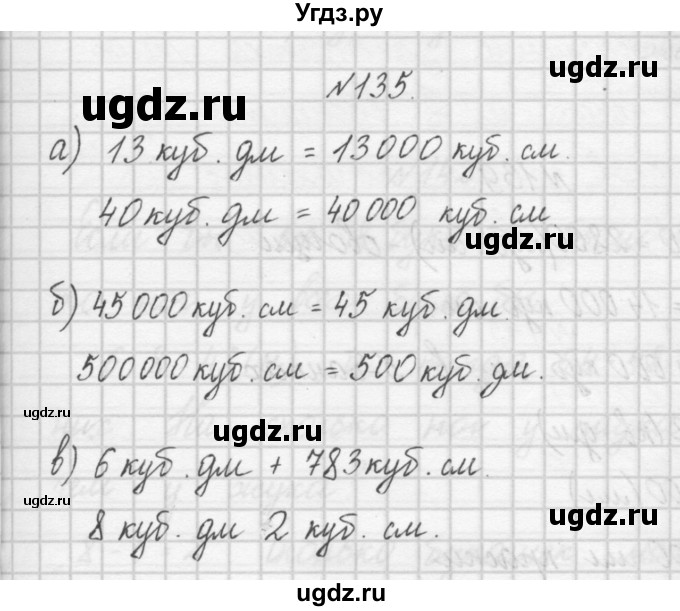 Угдз.ру
ugdz.ru
№135.
ugdz.ru
а) 13 куб. дм = 13000 куб. см.
40 куб. дм = 40 000 куб. см
ugdz.ru
б) 45000 куб. см = 45 куб. дм.
500000 куб. см = 500 куб. дм.
ugdz.ru
ugdz.ru
в) 6 куб. дм + 783 куб. см.
ugdz.ru
ugdz.ru
8 куб. дм 2 куб. см.
ugdz.ru
ugdz.ru